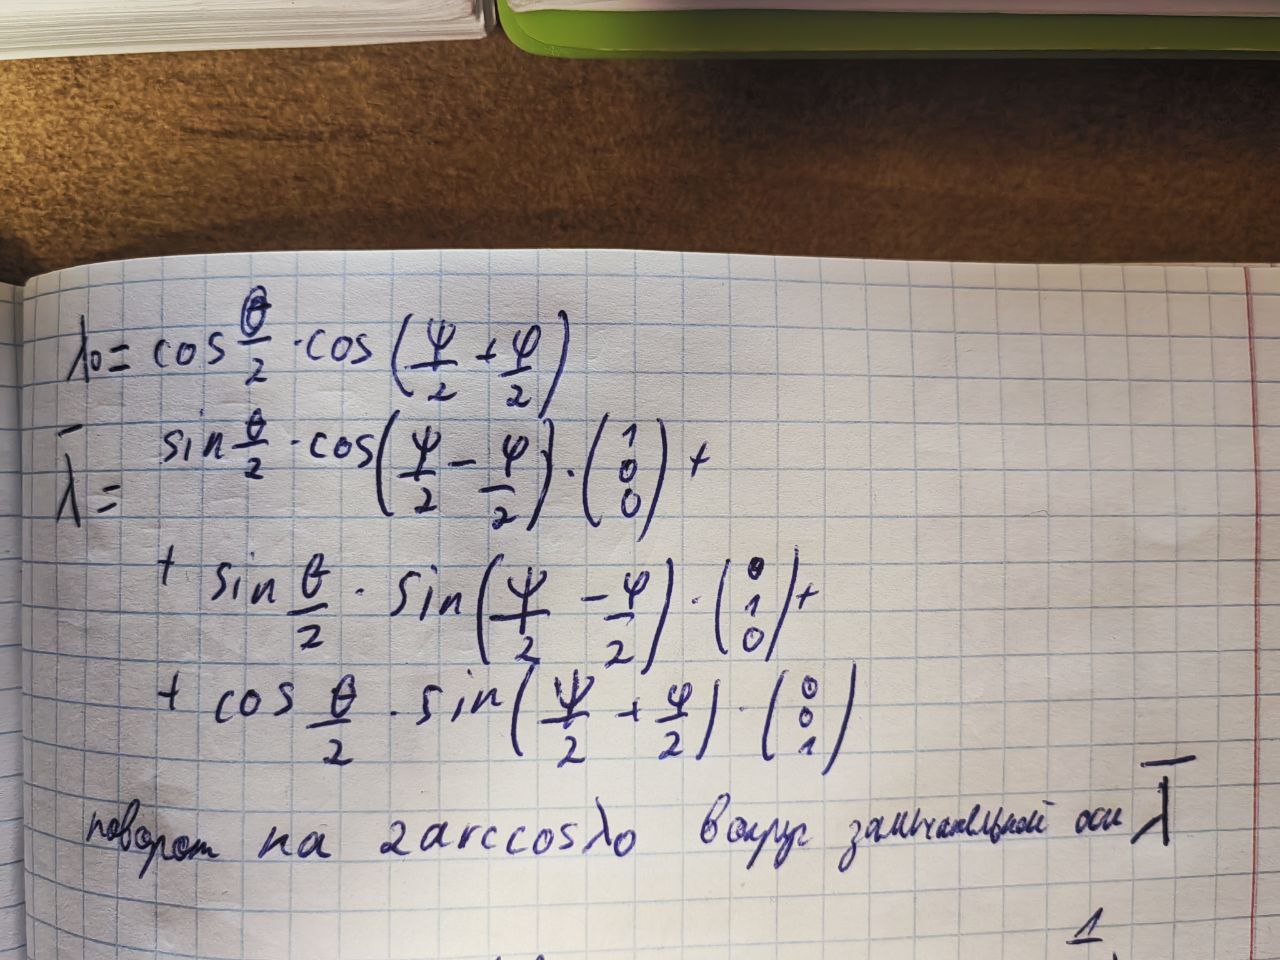 λ₀ = cos θ/2 · cos (ψ/2 + φ/2)
λ̄ = sin θ/2 · cos (ψ/2 − φ/2) · (1 0 0) +
+ sin θ/2 · sin (ψ/2 − φ/2) · (0 1 0) +
+ cos θ/2 · sin (ψ/2 + φ/2) · (0 0 1)
поворот на 2arccosλ₀ вокруг замечательной оси λ̄
1